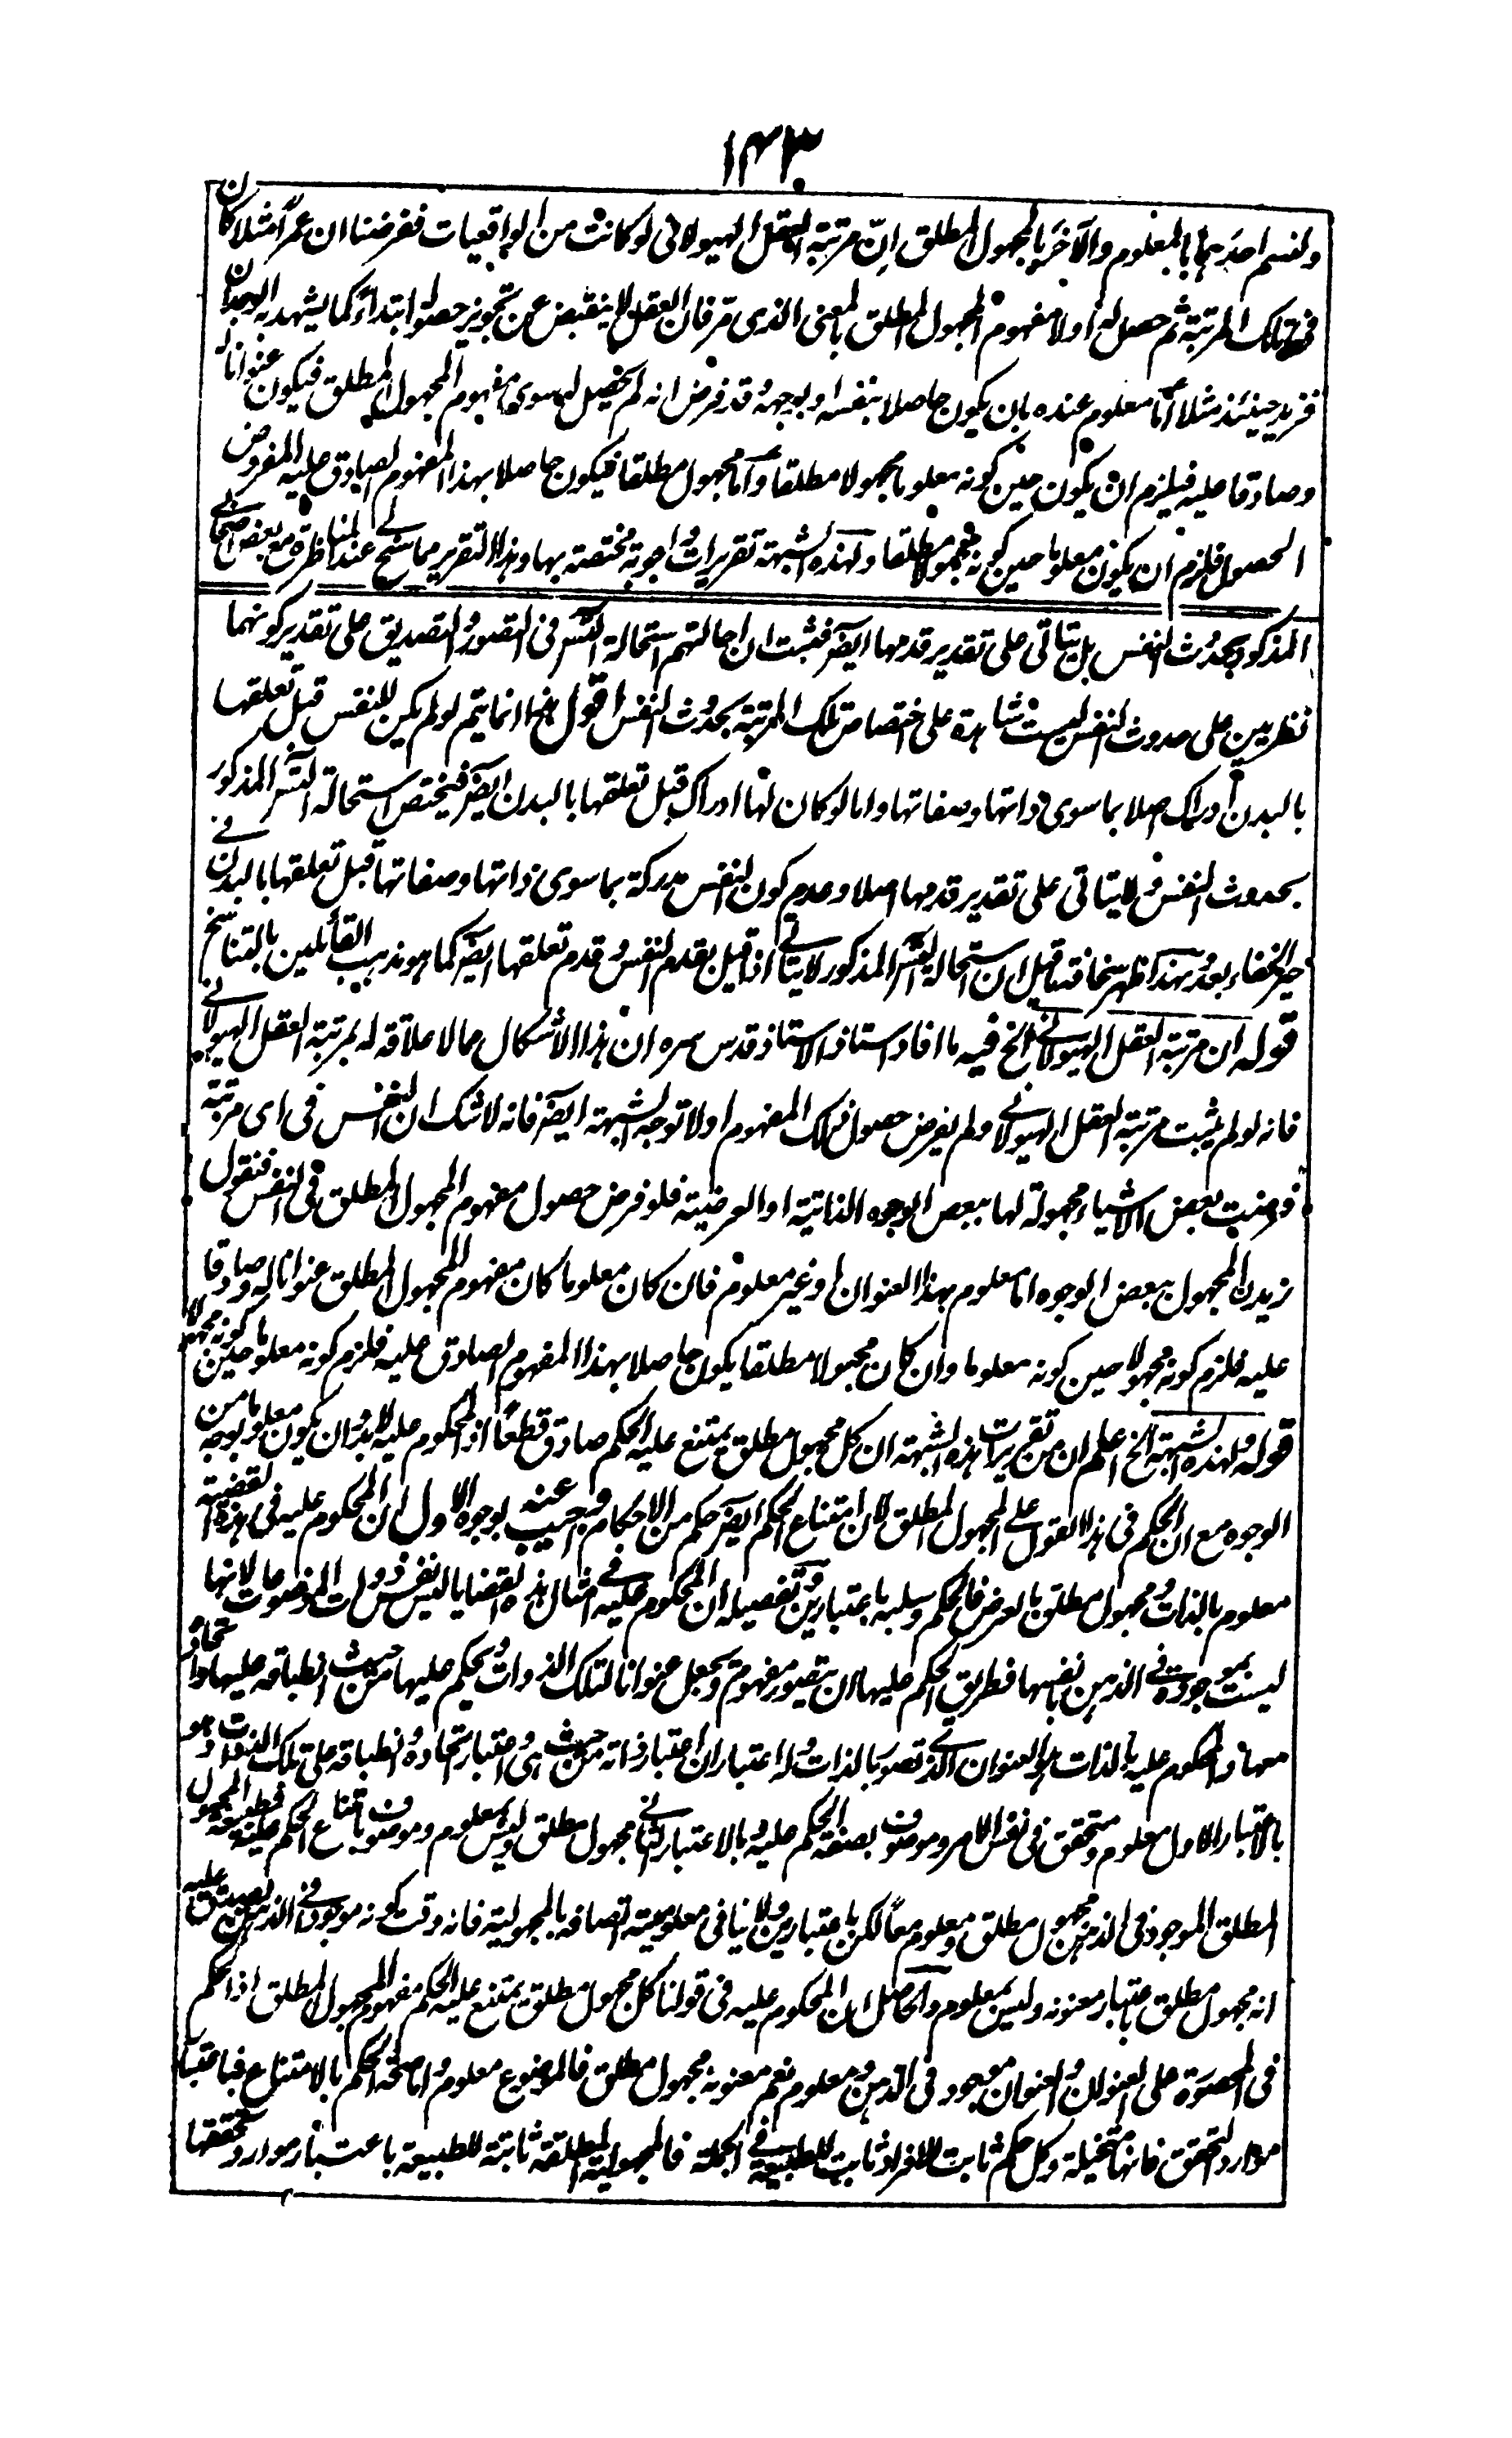 ١٤٣
ولنسم احدهما بالمعلوم والآخر بالمجهول المطلق ان مرتبة العقل الهيولاني لو كانت من الواقعيات ففرضنا ان عمرا مثلا كان
في تلك المرتبة ثم حصل له اولا مفهوم المجهول المطلق بالمعنى الذي مر فان العقل لا ينقبض عن تجويز حصوله ابتداء كما يشهد به الوجدان
فزيد حينئذ مثلا اما معلوم عنده بان يكون حاصلا بنفسه او بوجهه وقد فرض انه لم يحصل له سوى مفهوم المجهول المطلق فيكون عنوانا له
وصادقا عليه فيلزم ان يكون حين كونه معلوما مجهولا مطلقا واما مجهول مطلقا فيكون حاصلا بهذا المفهوم الصادق عليه المفروض
الحصول فلزم ان يكون معلوما حين كونه مجهولا مطلقا ولهذه الشبهة تقريرات واجوبة مختصة بها وهذا التقرير مما سنح لي عند المناظرة مع بعض اصحابي
المذكور بحدوث النفس بل يتأتى على تقدير قدمها ايضا فثبت ان احالتهم استحالة التس في التصور والتصديق على تقدير كونهما
نظريين على حدوث النفس ليست شاهدة على اختصاص تلك المرتبة بحدوث النفس اقول هذا انما يتم لو لم يكن للنفس قبل تعلقها
بالبدن ادراك اصلا بما سوى ذاتها وصفاتها واما لو كان لها ادراك قبل تعلقها بالبدن ايضا فيختص استحالة التس المذكور
بحدوث النفس ولا يتأتى على تقدير قدمها اصلا وعدم كون النفس مدركة بما سوى ذاتها وصفاتها قبل تعلقها بالبدن في
حيز الخفاء بعد وبهذا ظهر سخافة ما قيل ان استحالة التس المذكور لا يتأتى اذا قيل بقدم النفس وقدم تعلقها ايضا كما هو مذهب القائلين بالتناسخ
قوله ان مرتبة العقل الهيولاني الخ فيه ما افاد استاذ الاستاذ قدس سره ان هذا الاشكال مما لا علاقة له بمرتبة العقل الهيولاني
فانه لو لم يثبت مرتبة العقل الهيولاني ولم يفرض حصول ذلك المفهوم اولا توجه الشبهة ايضا فانه لا شك ان النفس في اي مرتبة
فرضت بعض الاشياء مجهولة لها ببعض الوجوه الذاتية او العرضية فلو فرض حصول مفهوم المجهول المطلق في النفس فنقول
زيد المجهول ببعض الوجوه اما معلوم بهذا العنوان او غير معلوم فان كان معلوما كان مفهوم المجهول المطلق عنوانا له وصادقا
عليه فلزم كونه مجهولا حين كونه معلوما وان كان مجهولا مطلقا يكون حاصلا بهذا المفهوم الصادق عليه فلزم كونه معلوما حين كونه مجهولا
قوله ولهذه الشبهة الخ اعلم ان من تقريرات هذه الشبهة ان كل مجهول مطلق يمتنع عليه الحكم صادق قطعا اذ المحكوم عليه لا بد ان يكون معلوما بوجه من
الوجوه مع ان الحكم في هذا القول على المجهول المطلق لان امتناع الحكم ايضا حكم من الاحكام واجيب عنه بوجوه الاول ان المحكوم عليه في هذه القضية
معلوم بالذات ومجهول مطلق بالعرض فالحكم وسلبه باعتبارين وتفصيله ان المحكوم عليه في امثال هذه القضايا ليس نفس ذوات الموضوعات لانها
ليست بموجودة في الذهن بانفسها فطريق الحكم عليها ان يتصور مفهوم ويجعل عنوانا لتلك الذوات ويحكم عليها من حيث انطباقه عليها واتحاده
معها والمحكوم عليه بالذات هو العنوان الذي تصور بالذات وله اعتباران اعتبار ذاته من حيث هي واعتبار اتحاده وانطباقه على تلك الذوات وهو
بالاعتبار الاول معلوم ومتحقق في نفس الامر وموصوف بصفة الحكم عليه وبالاعتبار الثاني مجهول مطلق وليس بمعلوم وموصوف بامتناع الحكم عليه فطبيعة المجهول
المطلق الموجود في الذهن مجهول مطلق ومعلوم معا لكن باعتبارين ولا ينافي معلوميته اتصافه بالمجهولية فانه وقت كونه موجودا في الذهن يصدق عليه
انه مجهول مطلق باعتبار معنونه وليس بمعلوم والحاصل ان المحكوم عليه في قولنا كل مجهول مطلق يمتنع عليه الحكم مفهوم المجهول المطلق اذ الحكم
في المحصورة على العنوان والعنوان موجود في الذهن ومعلوم نعم معنونه مجهول مطلق فالموضوع معلوم واما صحة الحكم بالامتناع فباعتبار
موارد التحقق فانها متخيلة وكل حكم ثابت للافراد ثابت للطبيعة في الجملة فالمجهولية المطلقة ثابتة للطبيعة باعتبار موارد تحققها